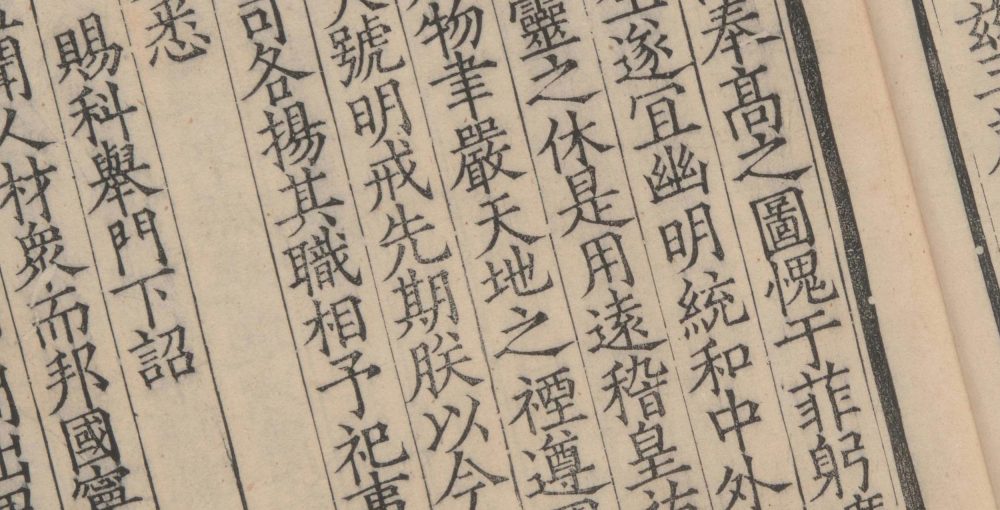 奉高之圖愧于菲躬
遂宜幽明統和中外
靈之休是用遠稽皇
物聿嚴天地之禋遵
號明戒先期朕以今
司各揚其職相予祀事
悉
賜科舉門下詔
聞人材衆而邦國寧